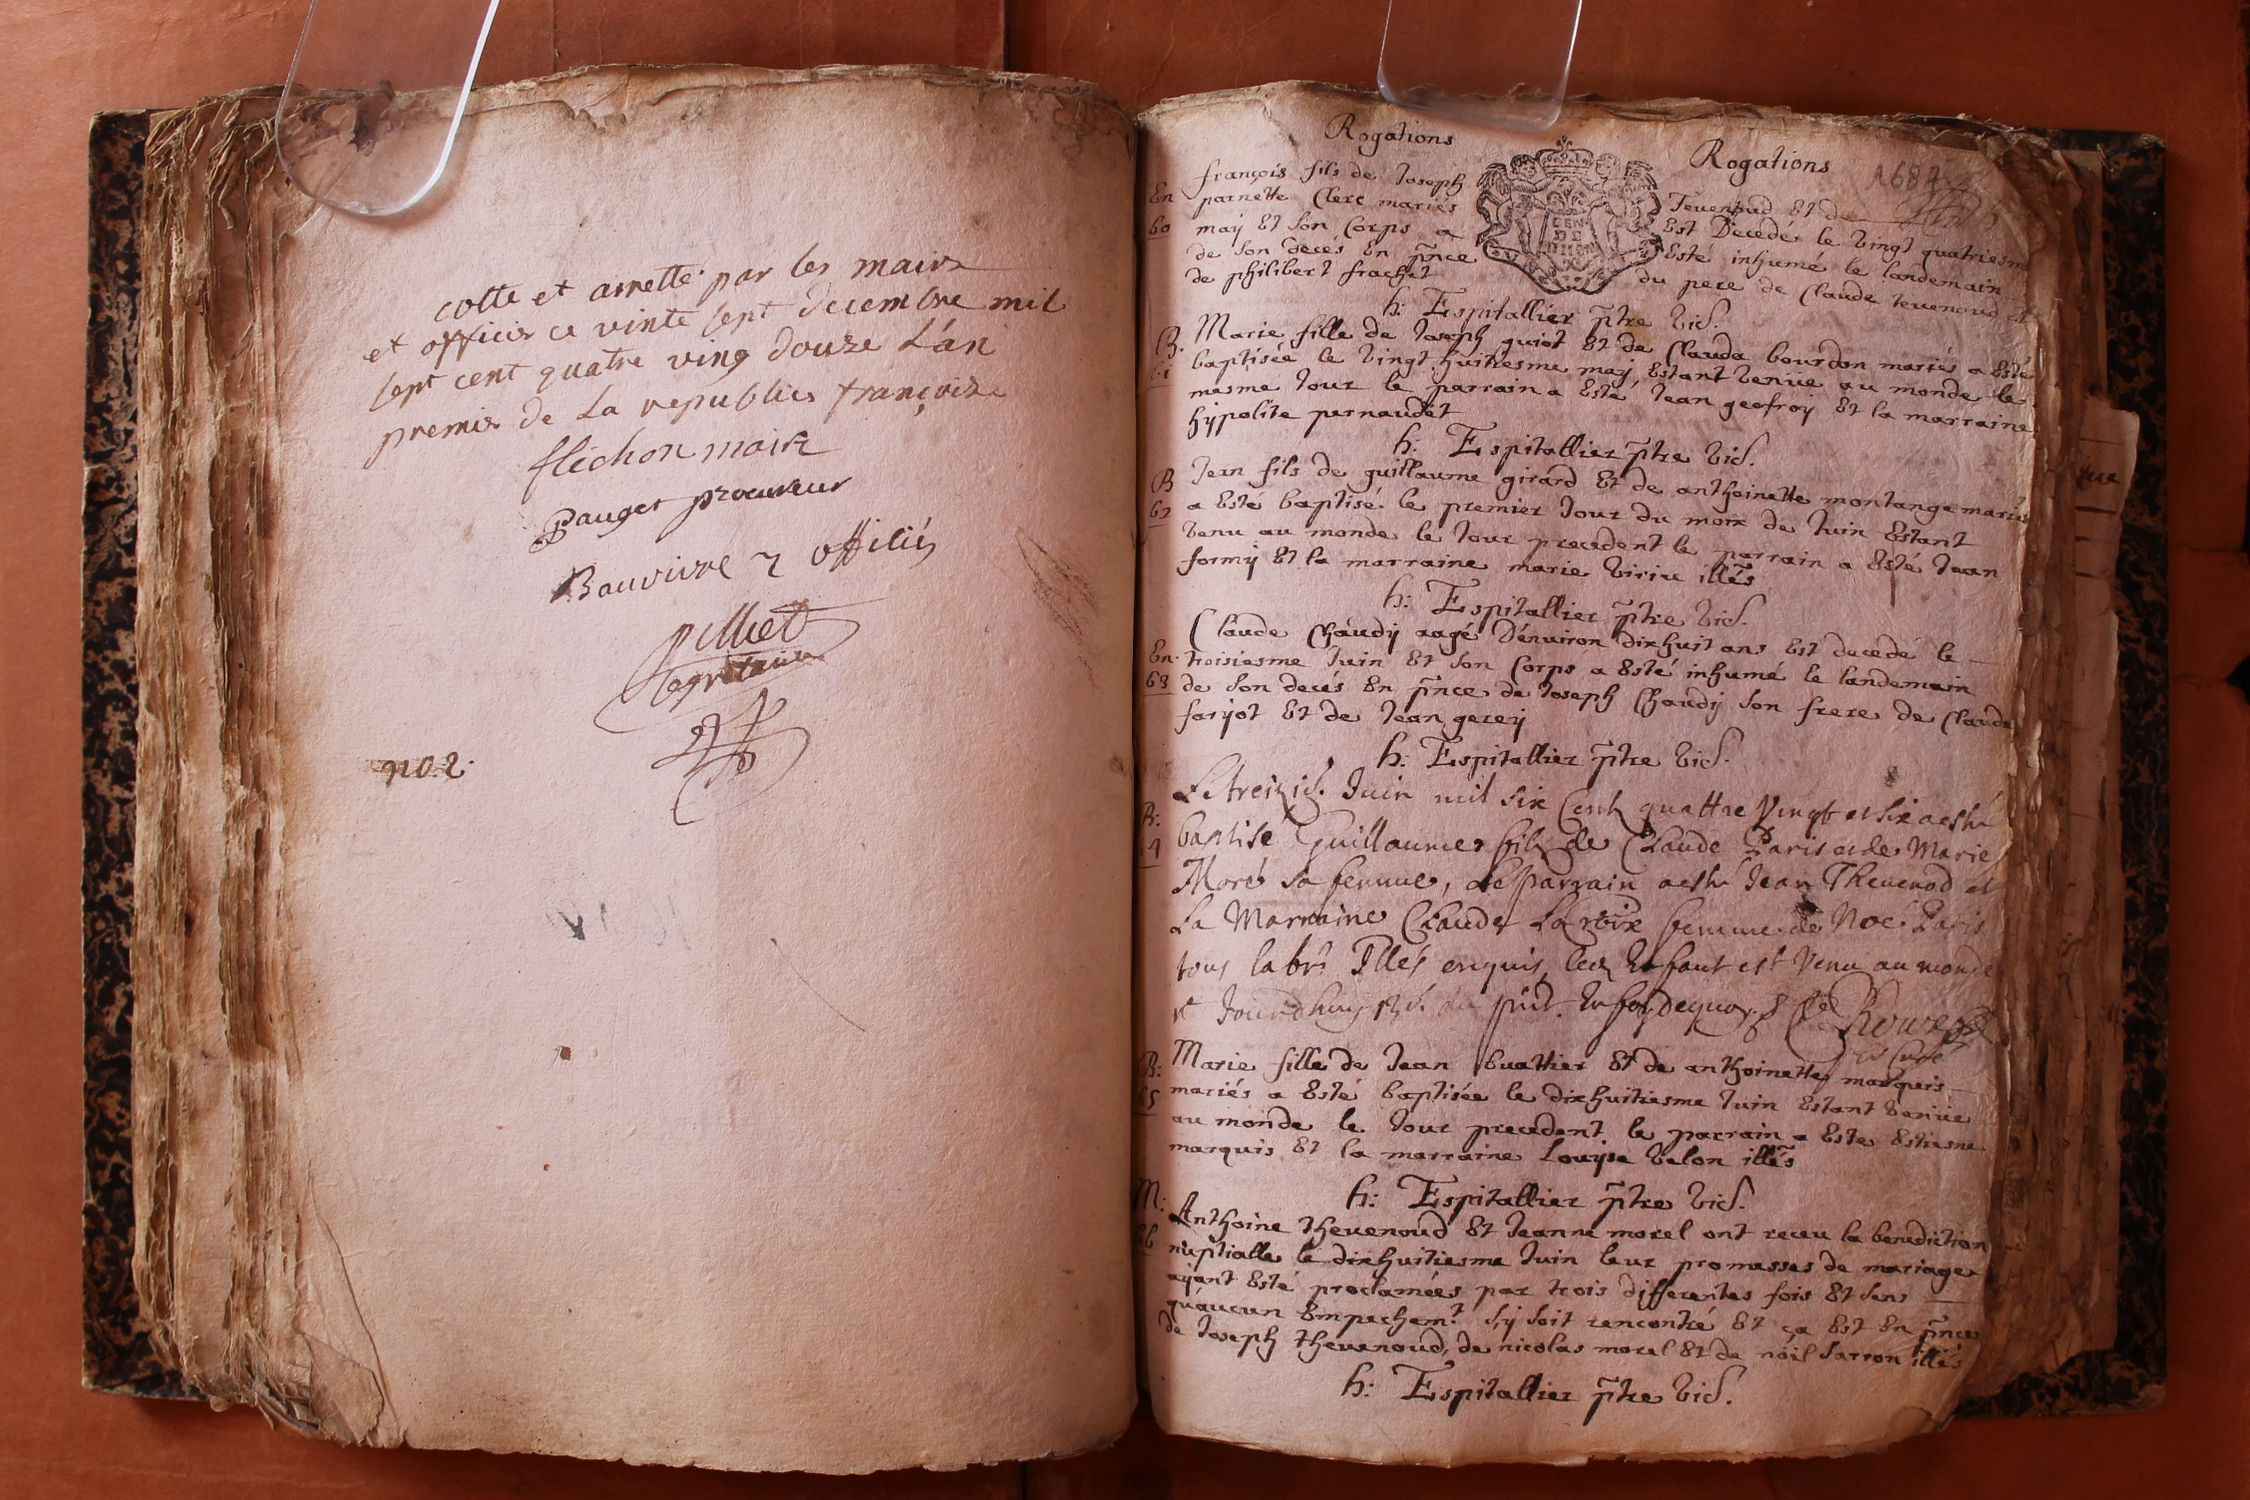 cotte et arretté par les maire
et officier ce vinte sept decembre mil
sept cent quatre ving douze L'an
premier de La republies françoise
flechon maire
Pauget procureur
Bouvivre officiés
pilliet
segretaire
no. 2.
Rogations Rogations
En françois fils de Joseph Tevenoud Et de
60 parnette Clerc mariés Est Decedé le vingt quatriesme
maÿ Et son Corps a Esté inhumé le landemain
de son decés En p̃nce du pere de Claude tevenoud et
de philibert frachet
h: Espitallier p̃tre vic.
B. Marie fille de Joseph guiot Et de Clauda bourdon mariés a Esté
61 baptisée le vingt huitiesme maÿ Estant venüe au monde le
mesme Jour le parrain a Esté Jean geofroÿ Et la marraine
hÿpolite pernaudet
h: Espitallier p̃tre vic.
B Jean fils de guillaume girard Et de anthoinette montange mariés
62 a Esté baptisé le premier Jour du moix de Juin Estant
venu au monde le Jour precedent le parrain a Esté Jean
formÿ Et la marraine marie viriee illés
h: Espitallier p̃tre vic.
Claude Chaudÿ aagé D'environ dixhuit ans Est decedé le
En troisiesme Juin Et son Corps a Esté inhumé le landemain
63 de son decés En p̃nce de Joseph Chaudÿ son frere de Claude
farjot Et de Jean gereÿ
h: Espitallier p̃tre vic.
Le treizie. Juin mil six Cent quattre Vingt et six a esté
B: baptisé Guillaume fils de Claude Paris et de Marie
64 Moré sa femme, Le parrain a esté Jean Thevenod et
La Marraine Claude La croix femme de Noel Paris
tous labrs Illés enquis, Led Enfant est Venu au monde
et Jourdhuy 13e. du pnt. En foy de quoy
Curé
B: Marie fille de Jean buathier Et de anthoinette marquis
65 mariés a Esté baptisée le dixhuitiesme Juin Estant venüe
au monde le Jour precedent le parrain a Esté Estiesne
marquis Et la marraine Louÿse velon illés
h: Espitallier p̃tre vic.
M: Anthoine thevenoud Et Jeanne morel ont receu la benediction
66 nuptialle le dixhuitiesme Juin leur promesses de mariage
aÿant Esté proclamées par trois differentes fois Et sens
qu'aucun Empechemt. s'ÿ soit rencontré Et ça Est En p̃nce
de Joseph thevenoud, de nicolas morel Et de nöel sarron illés
h: Espitallier p̃tre vic.